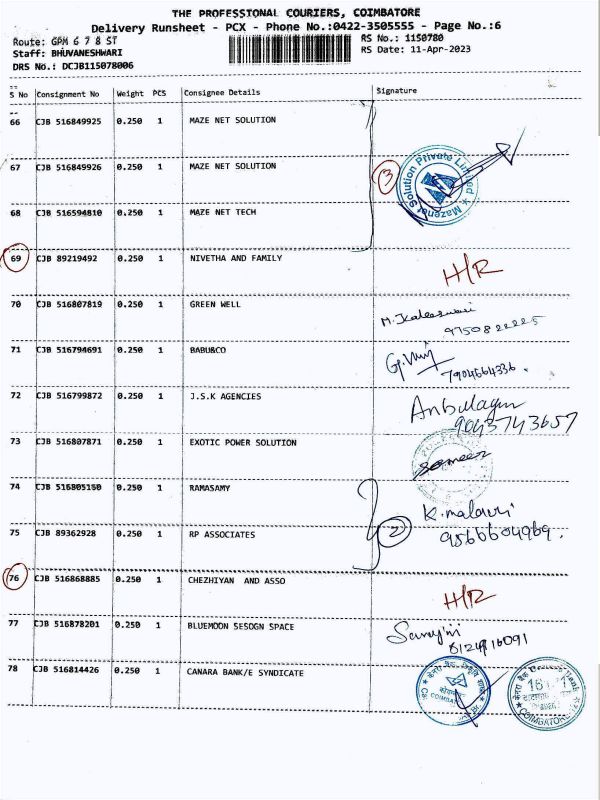 THE PROFESSIONAL COURIERS, COIMBATORE
Delivery Runsheet - PCX - Phone No.:0422-3505555 - Page No.:6
Route: GPM 6 7 8 ST
RS No.: 1150780
Staff: BHUVANESHWARI
RS Date: 11-Apr-2023
DRS No.: DCJB115078006
S No Consignment No Weight PCS Consignee Details Signature
66 CJB 516849925 0.250 1 MAZE NET SOLUTION
67 CJB 516849926 0.250 1 MAZE NET SOLUTION 3 Mazenet Solution Private Limited
68 CJB 516594810 0.250 1 MAZE NET TECH
69 CJB 89219492 0.250 1 NIVETHA AND FAMILY H/R
70 CJB 516807819 0.250 1 GREEN WELL M. Kaleeswari
9750822225
71 CJB 516794691 0.250 1 BABU&CO
7904664336.
72 CJB 516799872 0.250 1 J.S.K AGENCIES Anbulagan
9043743657
73 CJB 516807871 0.250 1 EXOTIC POWER SOLUTION Sameer
74 CJB 516805150 0.250 1 RAMASAMY K. malavri
75 CJB 89362928 0.250 1 RP ASSOCIATES 2 9566604969.
76 CJB 516868885 0.250 1 CHEZHIYAN AND ASSO H/R
77 CJB 516878201 0.250 1 BLUEMOON SESOGN SPACE
78 CJB 516814426 0.250 1 CANARA BANK/E SYNDICATE
COIMBATORE